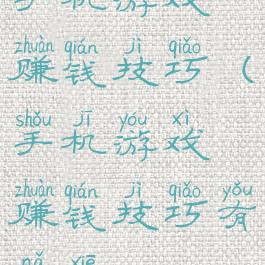 手机游戏
zhuàn qián jì qiǎo
赚钱技巧（
shǒu jī yóu xì
手机游戏
zhuàn qián jì qiǎo yǒu
赚钱技巧有
nǎ xiē